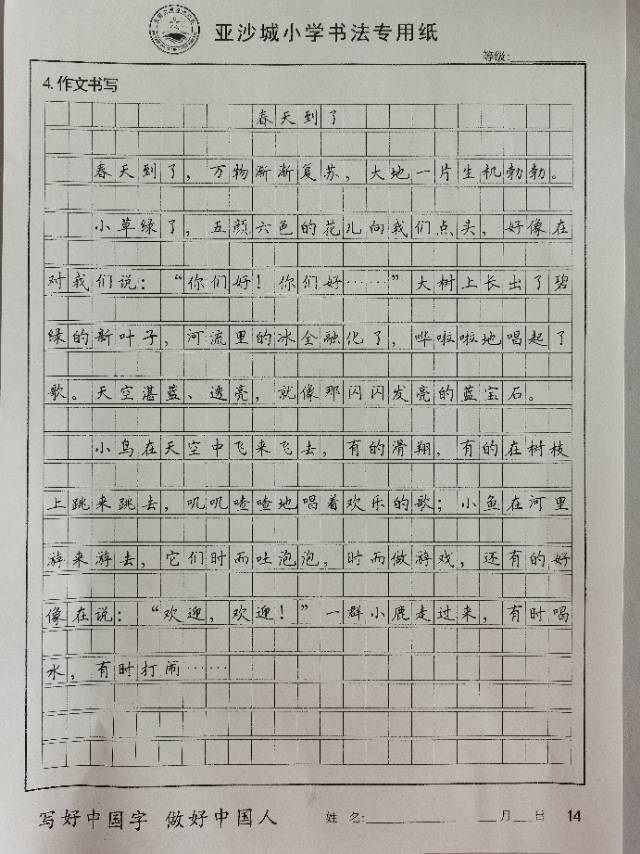 亚沙城小学书法专用纸
等级:
4.作文书写
春天到了
春天到了，万物渐渐复苏，大地一片生机勃勃。
小草绿了，五颜六色的花儿向我们点头，好像在
对我们说：“你们好！你们好……”大树上长出了碧
绿的新叶子，河流里的冰全融化了，哗啦啦地唱起了
歌。天空湛蓝、透亮，就像那闪闪发亮的蓝宝石。
小鸟在天空中飞来飞去，有的滑翔，有的在树枝
上跳来跳去，叽叽喳喳地唱着欢乐的歌；小鱼在河里
游来游去，它们时而吐泡泡，时而做游戏，还有的好
像在说：“欢迎，欢迎！”一群小鹿走过来，有时喝
水，有时打闹……
写好中国字 做好中国人 姓名: 月 日 14